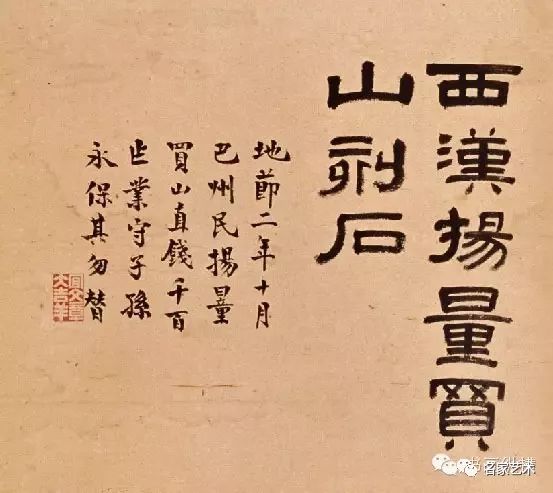 西漢揚量買
山刻石
地節二年十月
巴州民揚量
買山直錢千百
乍業守子孫
永保其勿替
名家艺术